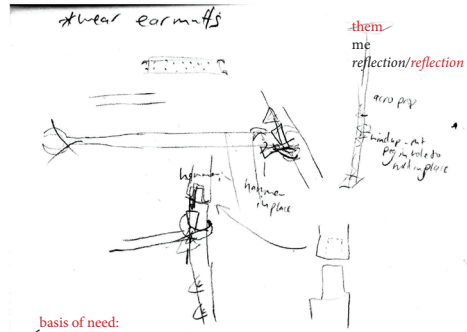 *wear earmuffs
them
me
reflection/reflection
acro prop
windup - nut
peg in hole to
hold in place
hammer in
hammer
in place
basis of need: